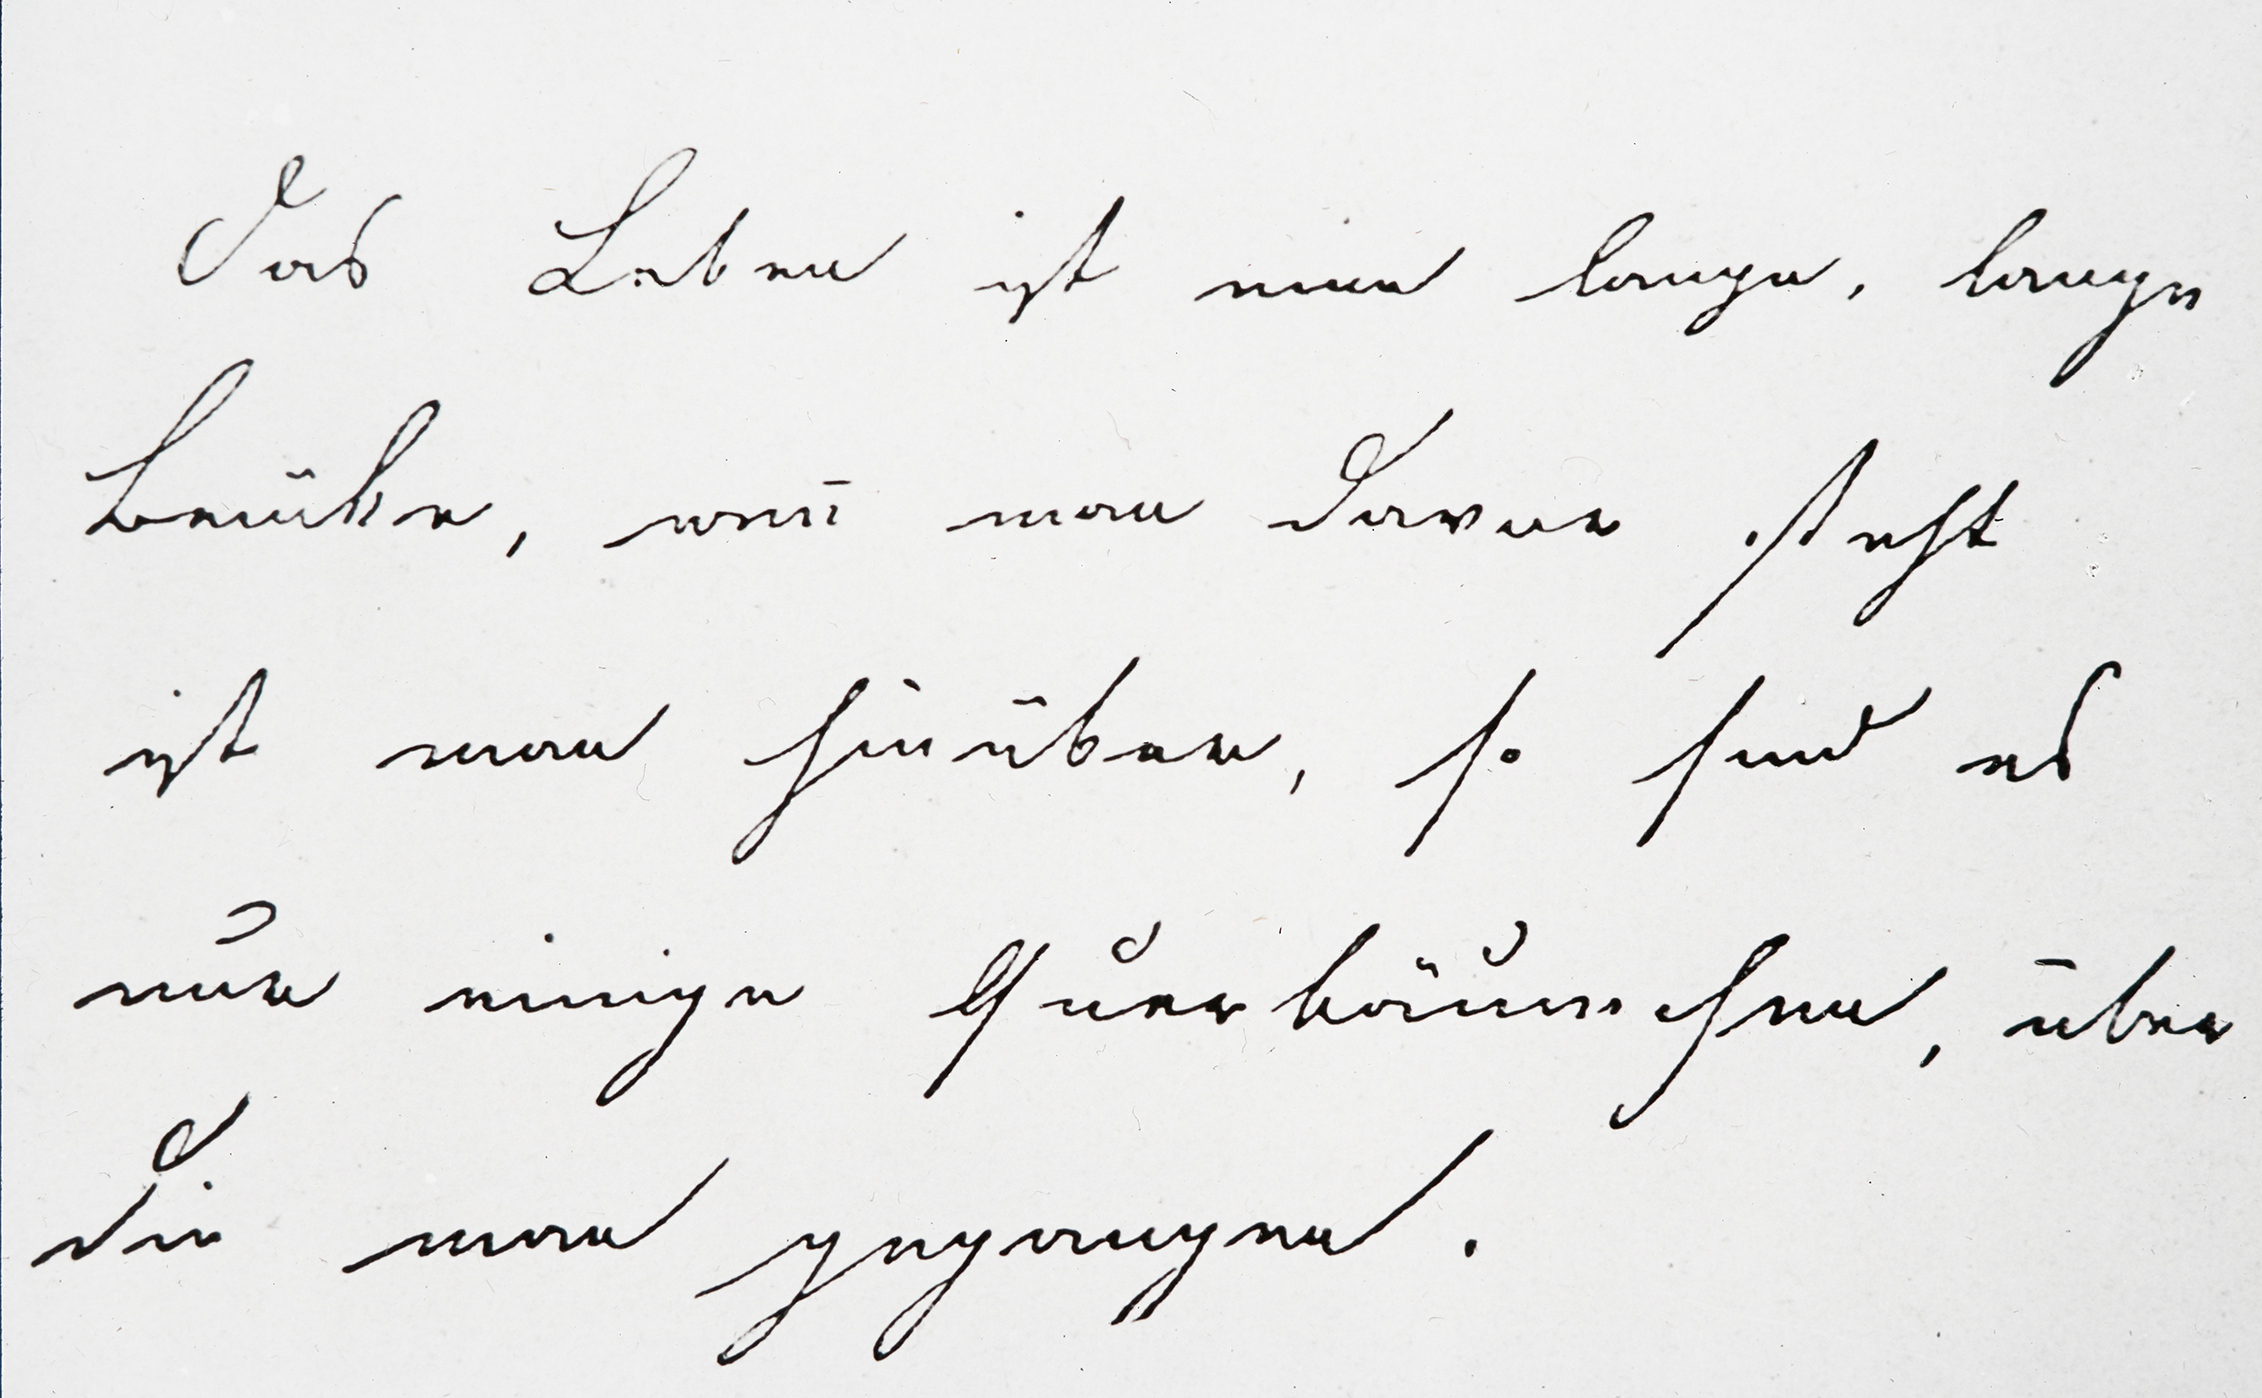 Das Leben ist eine lange, lange
Brücke, weñ man davor steht
ist man hinüber, so sind es
nur einige Querbäumchen, über
die man gegangen.